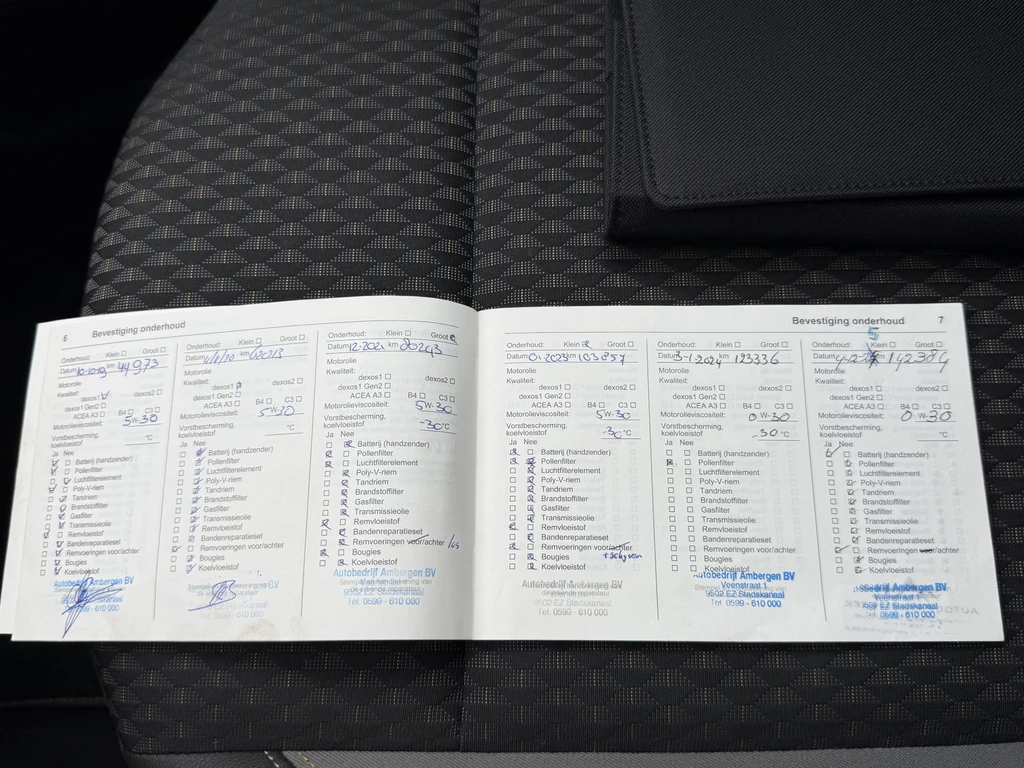 6 Bevestiging onderhoud
Onderhoud: Klein Groot
Datum km 44973
Motorolie
Kwaliteit:
dexos1 dexos2
dexos1 Gen2
ACEA A3 B4 C3
Motorolieviscositeit: 5W-30
Vorstbescherming,
koelvloeistof °C
Ja Nee
Batterij (handzender)
Pollenfilter
Luchtfilterelement
Poly-V-riem
Tandriem
Brandstoffilter
Gasfilter
Transmissieolie
Remvloeistof
Bandenreparatieset
Remvoeringen voor/achter
Bougies
Koelvloeistof
Autobedrijf Ambergen BV
0599 - 610 000
Onderhoud: Klein Groot
Datum km
Motorolie
Kwaliteit:
dexos1 dexos2
dexos1 Gen2
ACEA A3 B4 C3
Motorolieviscositeit: 5W-30
Vorstbescherming,
koelvloeistof °C
Ja Nee
Batterij (handzender)
Pollenfilter
Luchtfilterelement
Poly-V-riem
Tandriem
Brandstoffilter
Gasfilter
Transmissieolie
Remvloeistof
Bandenreparatieset
Remvoeringen voor/achter
Bougies
Koelvloeistof
Onderhoud: Klein Groot
Datum 12-2021 km
Motorolie
Kwaliteit:
dexos1 dexos2
dexos1 Gen2
ACEA A3 B4 C3
Motorolieviscositeit: 5W-30
Vorstbescherming,
koelvloeistof -30°C
Ja Nee
Batterij (handzender)
Pollenfilter
Luchtfilterelement
Poly-V-riem
Tandriem
Brandstoffilter
Gasfilter
Transmissieolie
Remvloeistof
Bandenreparatieset
Remvoeringen voor/achter
Bougies
Koelvloeistof
Autobedrijf Ambergen BV
9502 EZ Stadskanaal
Tel. 0599 - 610 000
Bevestiging onderhoud 7
Onderhoud: Klein Groot
Datum 01-2023 km 103857
Motorolie
Kwaliteit:
dexos1 dexos2
dexos1 Gen2
ACEA A3 B4 C3
Motorolieviscositeit: 5W-30
Vorstbescherming,
koelvloeistof -30°C
Ja Nee
Batterij (handzender)
Pollenfilter
Luchtfilterelement
Poly-V-riem
Tandriem
Brandstoffilter
Gasfilter
Transmissieolie
Remvloeistof
Bandenreparatieset
Remvoeringen voor/achter
Bougies
Koelvloeistof
Autobedrijf Ambergen BV
9502 EZ Stadskanaal
Tel. 0599 - 610 000
Onderhoud: Klein Groot
Datum 3-1-2024 km 123336
Motorolie
Kwaliteit:
dexos1 dexos2
dexos1 Gen2
ACEA A3 B4 C3
Motorolieviscositeit: 0W-30
Vorstbescherming,
koelvloeistof -30°C
Ja Nee
Batterij (handzender)
Pollenfilter
Luchtfilterelement
Poly-V-riem
Tandriem
Brandstoffilter
Gasfilter
Transmissieolie
Remvloeistof
Bandenreparatieset
Remvoeringen voor/achter
Bougies
Koelvloeistof
Autobedrijf Ambergen BV
Veenstraat 1
9502 EZ Stadskanaal
Tel. 0599 - 610 000
5
Onderhoud: Klein Groot
Datum km 142384
Motorolie
Kwaliteit:
dexos1 dexos2
dexos1 Gen2
ACEA A3 B4 C3
Motorolieviscositeit: 0W-30
Vorstbescherming,
koelvloeistof °C
Ja Nee
Batterij (handzender)
Pollenfilter
Luchtfilterelement
Poly-V-riem
Tandriem
Brandstoffilter
Gasfilter
Transmissieolie
Remvloeistof
Bandenreparatieset
Remvoeringen voor/achter
Bougies
Koelvloeistof
Autobedrijf Ambergen BV
Veenstraat 1
9502 EZ Stadskanaal
Tel. 0599 - 610 000